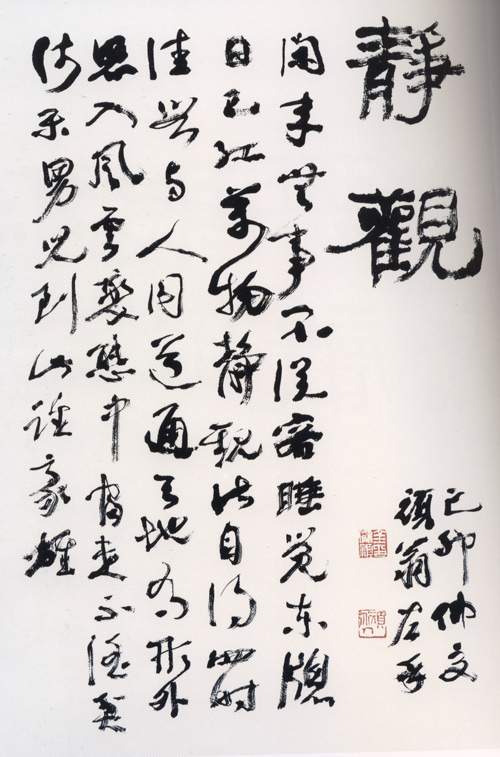 靜觀
閒来無事不從容睡覺东牕
日已紅萬物靜觀皆自得四時
佳興与人同道通天地為形外
思入風雲變態中富貴不淫貧
賤樂男兒到此豪雄
己卯仲夏
頑翁左手